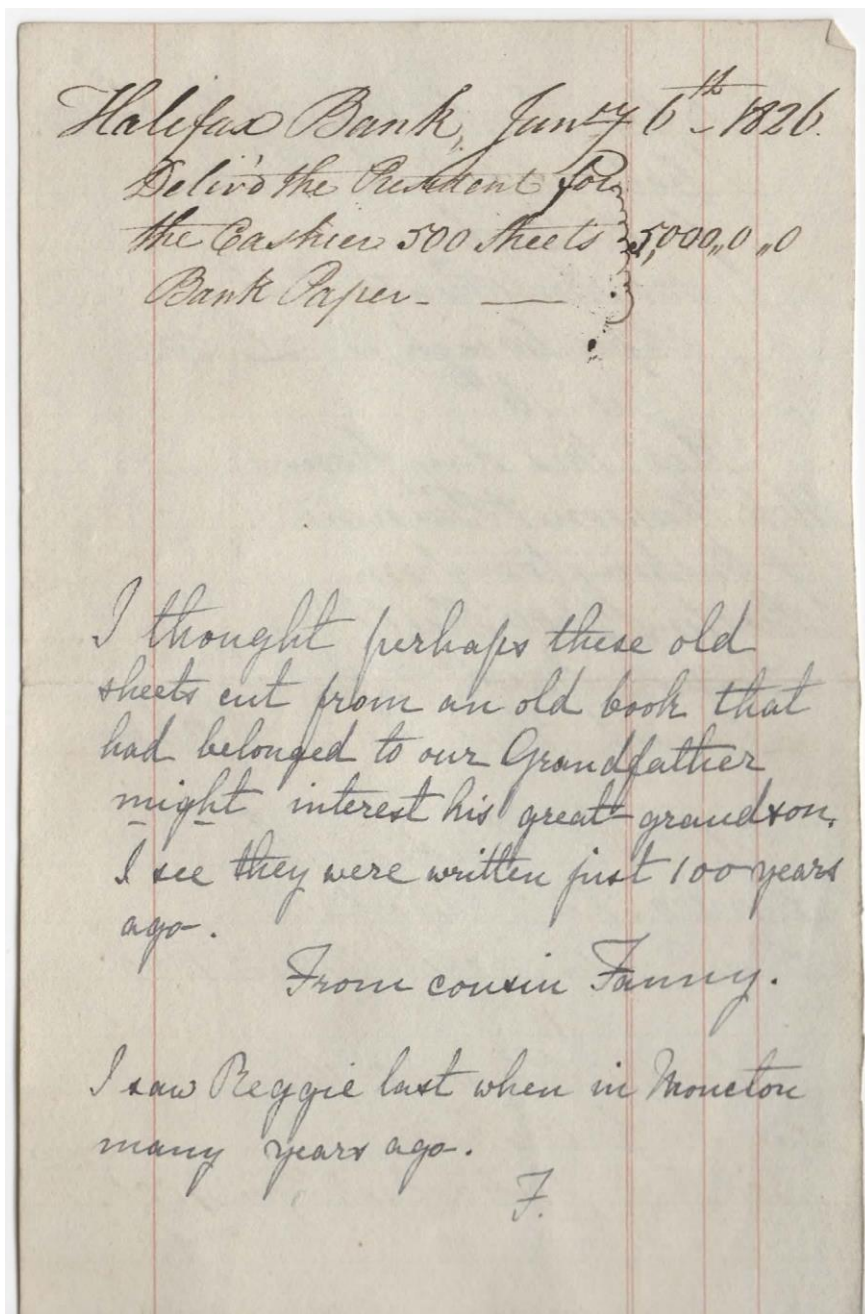 Halifax Bank, Jan'y 6th - 1826.
Deliv'd the President for
the Cashier 500 Sheets 5,000,,0,,0
Bank Paper -
I thought perhaps these old
sheets cut from an old book that
had belonged to our Grandfather
might interest his great-grandson.
I see they were written just 100 years
ago.
From cousin Fanny.
I saw Reggie last when in Moncton
many years ago.
F.